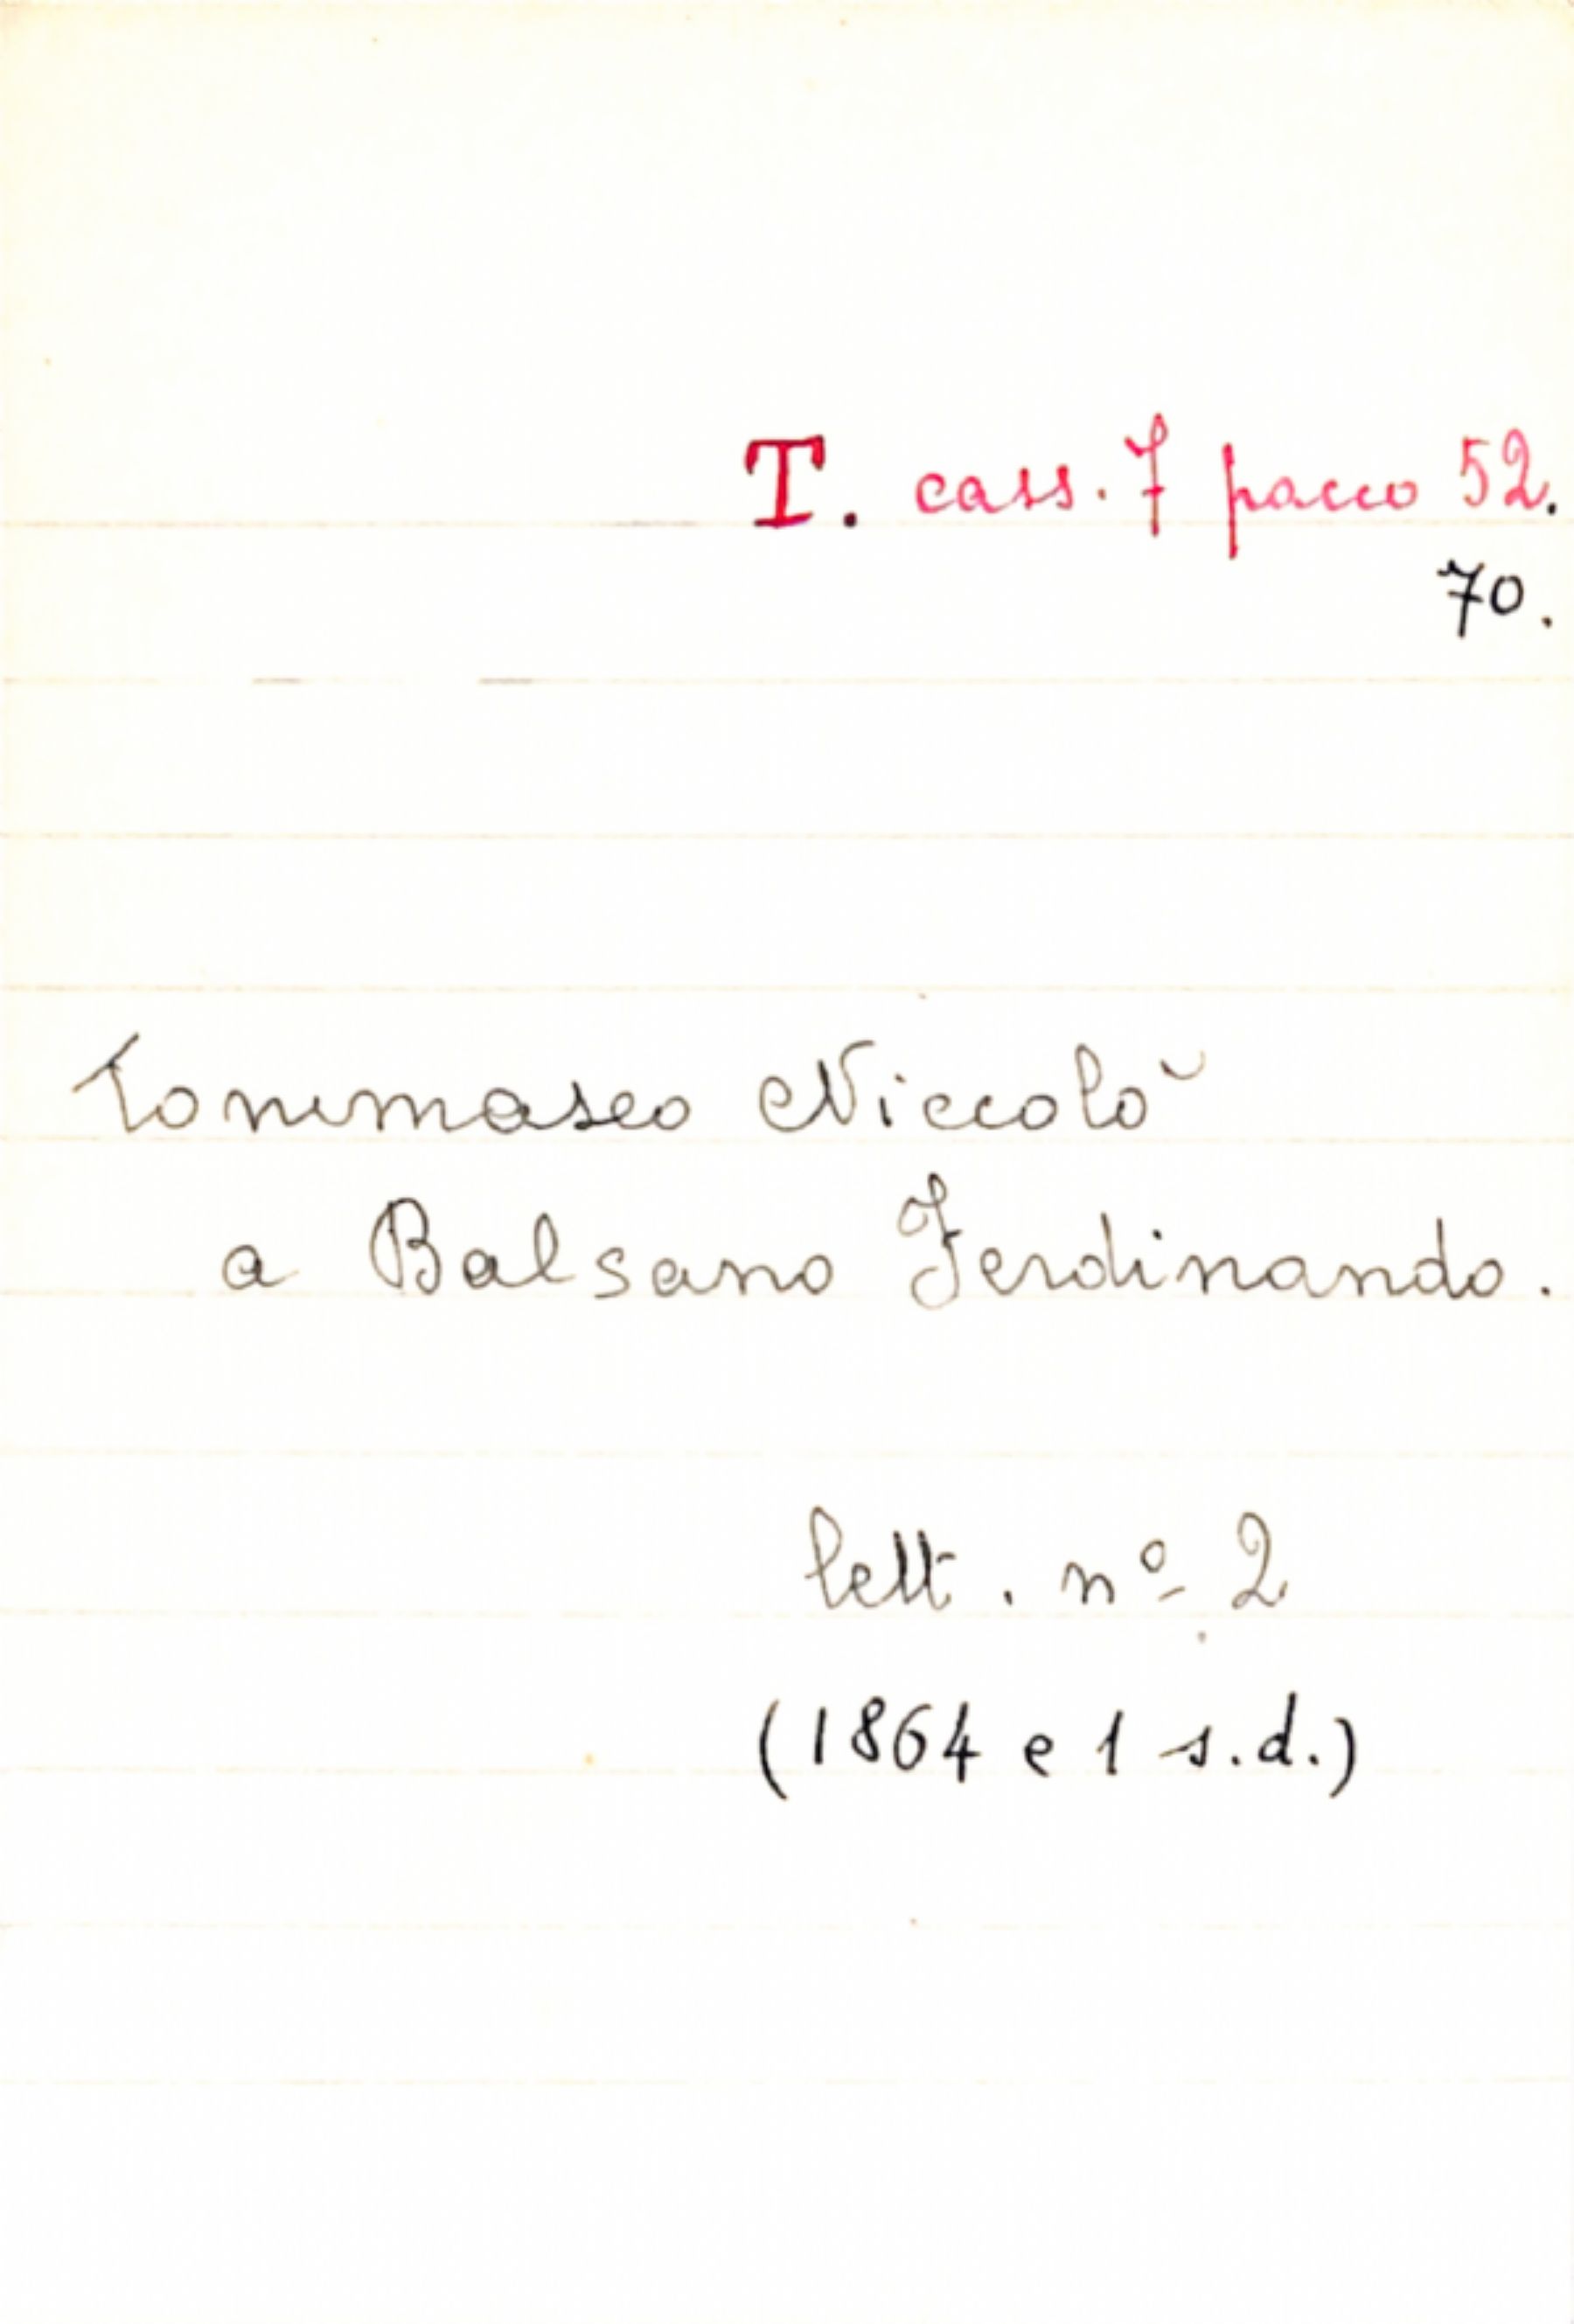 T. cass. 7 pacco 52.
70.
Tommaseo Niccolò
a Balsano Ferdinando.
lett. nº 2
(1864 e 1 s.d.)